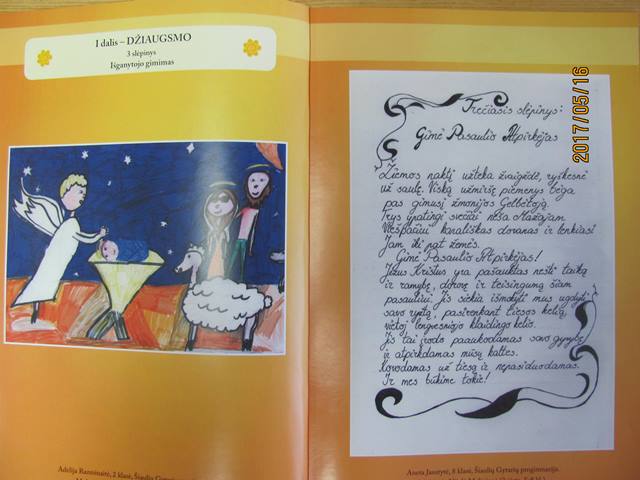 I dalis – DŽIAUGSMO
3 slėpinys
Išganytojo gimimas
Adelija Ramonaitė, 2 klasė, Šiaulių
Trečiasis slėpinys:
Gimė Pasaulio Atpirkėjas
Žiemos naktį užteka žvaigždė, ryškesnė
už saulę. Viską užmiršę piemenys bėga
pas gimusį žmonijos Gelbėtoją.
Trys ypatingi svečiai neša Mažajam
Viešpačiui karališkas dovanas ir lenkiasi
Jam iki pat žemės.
Gimė Pasaulio Atpirkėjas!
Jėzus Kristus yra pašauktas nešti taiką
ir ramybę, dorovę ir teisingumą šiam
pasauliui. Jis siekia išmokyti mus ugdyti
savo ryžtą, pasirenkant tiesos kelią,
vietoj lengvesniojo klaidingo kelio.
Jis tai įrodo paaukodamas savo gyvybę
ir atpirkdamas mūsų kaltes.
Kovodamas už tiesą ir nepasiduodamas.
Ir mes būkime tokie!
Aneta Jasutytė, 8 klasė, Šiaulių Gytarių progimnazija.
2017/05/16